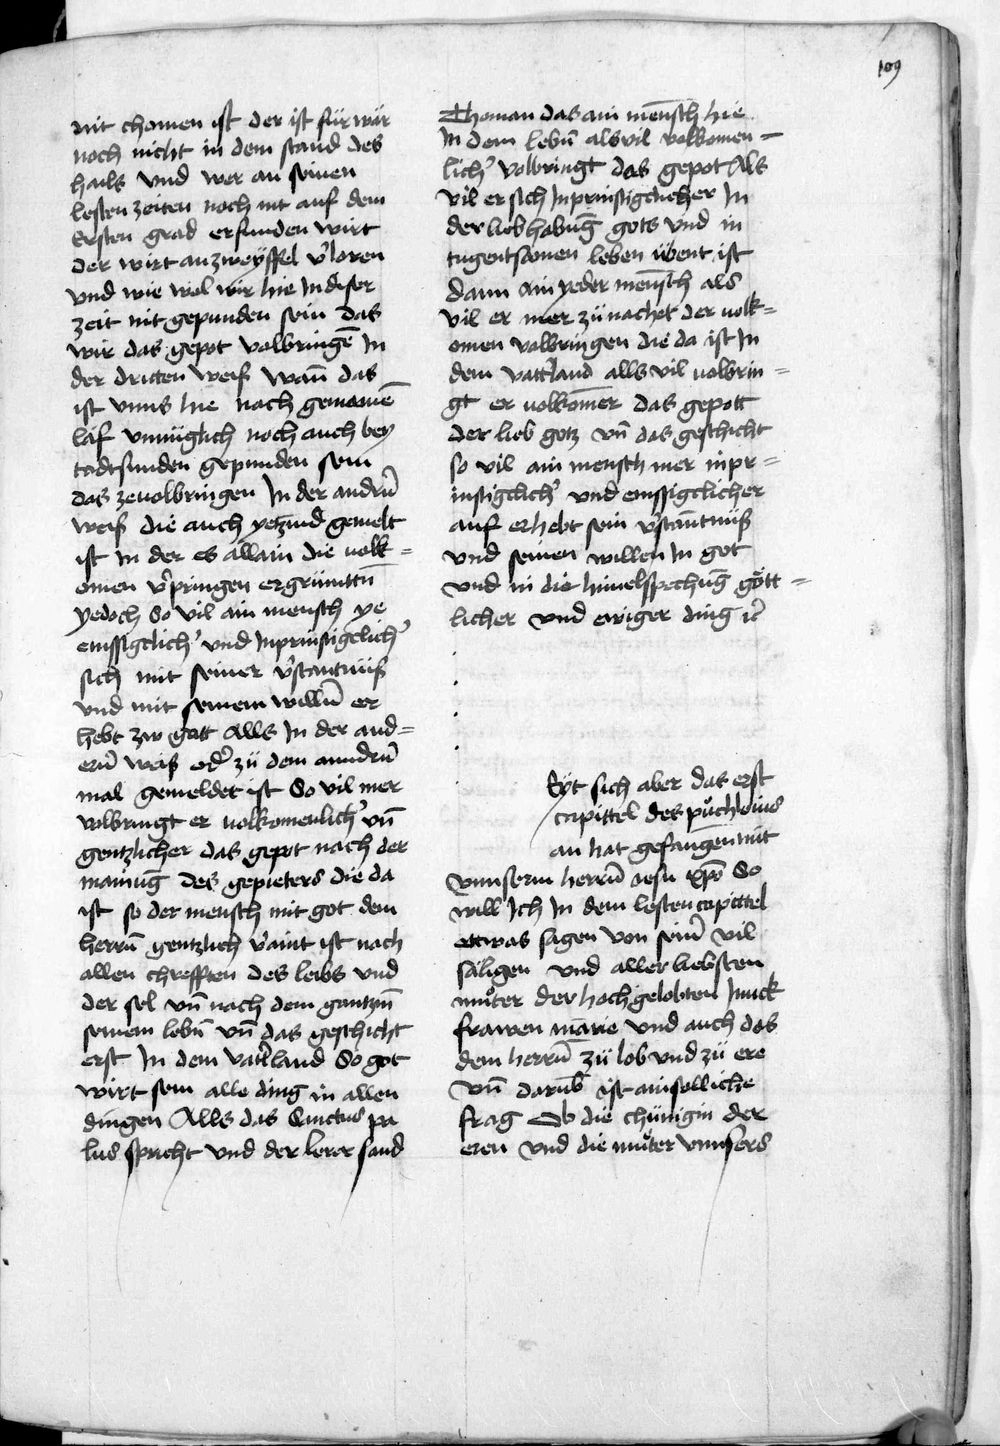 109
nit chomen ist der ist für wär
noch nicht in dem stand des
hails vnd wer an seinen
lesten zeiten noch nit auf dem
Ersten grad erfunden wirt
der wirt an zweyffel v̉loren
vnd wie wol wir hie In diser
zeit nit gepunden sein das
wir das gepot volbringē In
der dritten weis wañ das
ist vnns hie nach gemainē
laf vnmüglich noch auch bey
todtsunden gepunden sein
das ze uolbringen In der andrn̄
weis die auch yetzund gemelt
ist In der es allain die uolk=
omen v̉pringen ergrünttn̄
yedoch So vil ain mensch ye
emssigclich̉ vnd Inprünstigclich̉
sich mit seiner v̉stantnüss
vnd mit seinem willn̄ er
hebt zw gott Alls In der and=
ern̄ weis od̉ zü dem anndrn̄
mal gemeldet ist So vil mer
volbringt er uolkomenlich̉ vn̄
gentzlicher das gepot nach der
mainūg des gepieters die da
ist so der mensch mit got dem
herrn̄ gentzlich v̉aint ist nach
allen chrefften des leibs vnd
der sel vn̄ nach dem gantzn̄
seinem lebn̄ vn̄ das geschicht
erst In dem vatt̉land So got
wirt sein alle ding in allen
dingen Alls das Sanctus pa
lus spricht vnd der lerer sand
Thoman das ain mensch hie
In dem lebn̄ als vil volkomen=
lich̉ volbringt das gepot Als
vil er sich Inprünstigclicher In
der liebhabūg gots vnd in
tugentsamen leben übent ist
dann ain yeder mensch als
vil er mer zü nachet der uolk=
omen volbringen die da ist In
dem vatt̉land alls vil uolbrin=
gt er uolkom̄er das gepott
der lieb gotz vn̄ das geschicht
so vil ain mensch mer inpr=
instigclich̉ vnd emssigclicher
auf erhebt sein v̉stantnüss
vnd seinen willen In got
vnd in die himelsprechūg gött=
licher vnd ewiger ding ꝛc̄
Eyt sich aber das erst
capittel des püchleins
an hat gefangen mit
vnnserm herrn̄ Jesu xp̄o So
will Ich In dem lesten capittel
ettwas sagen von sein̉ vil
säligen vnd aller liebsten
müter der hochgelobten Junck
frawen marie vnd auch das
dem herrn̄ zü lob vnd zü ere
vn̄ darūb ist ain solliche
frag Ob die chünigin der
eren vnd die müter vnnsers